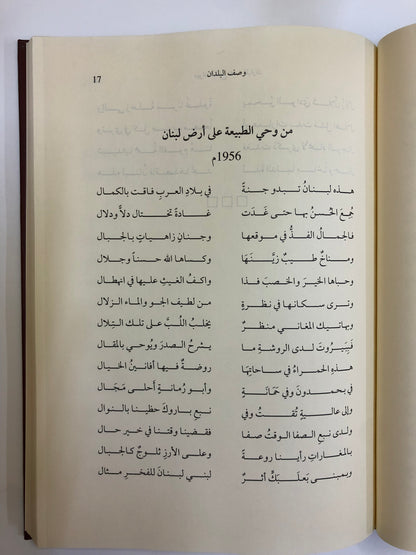 وصف البلدان 17
من وحي الطبيعة على أرض لبنان
1956م
هذه لبنانُ تبدو جنةً في بلادِ العربِ فاقت بالكمال
جُمِعَ الحُسنُ بها حتى غَدَت غادةً تختال دلاًّ ودلال
فالجمالُ الفذُّ في موقعها وجنانٍ زاهياتٍ بالجبال
ومناخٌ طيبٌ زيَّنَها وكساها الله حسناً وجلال
وحباها الخيرَ والخصبَ فذا واكفُ الغيثِ عليها في انهطال
ونرى سكانها في نظرةٍ من لطيفِ الجو والماءِ الزلال
وبهاتيك المغاني منظرٌ يخلبُ اللُّبَّ على تلك التِلال
فبَيروتَ لدى الروشةِ ما يشرحُ الصدرَ ويُوحي بالمقال
هذهِ الحمراءُ في ساحاتِها روضةٌ فيها أفانينُ الخيال
في بحمدون وفي حمّانةٍ وأبو رُمانةٍ أحلى مَجَال
وإلى عاليةٍ تُقتُ وفي نبعِ باروكَ حظينا بالنوال
ولدى نبعِ الصفا الوقتُ صفا فقضينا وقتنا في خيرِ حال
بالمغاراتِ رأينا روعةً وعلى الأرزِ ثلوجٌ كالجبال
وبمبنى بَعلبَكٍّ أثرٌ لبني لبنانَ للفخرِ مثال